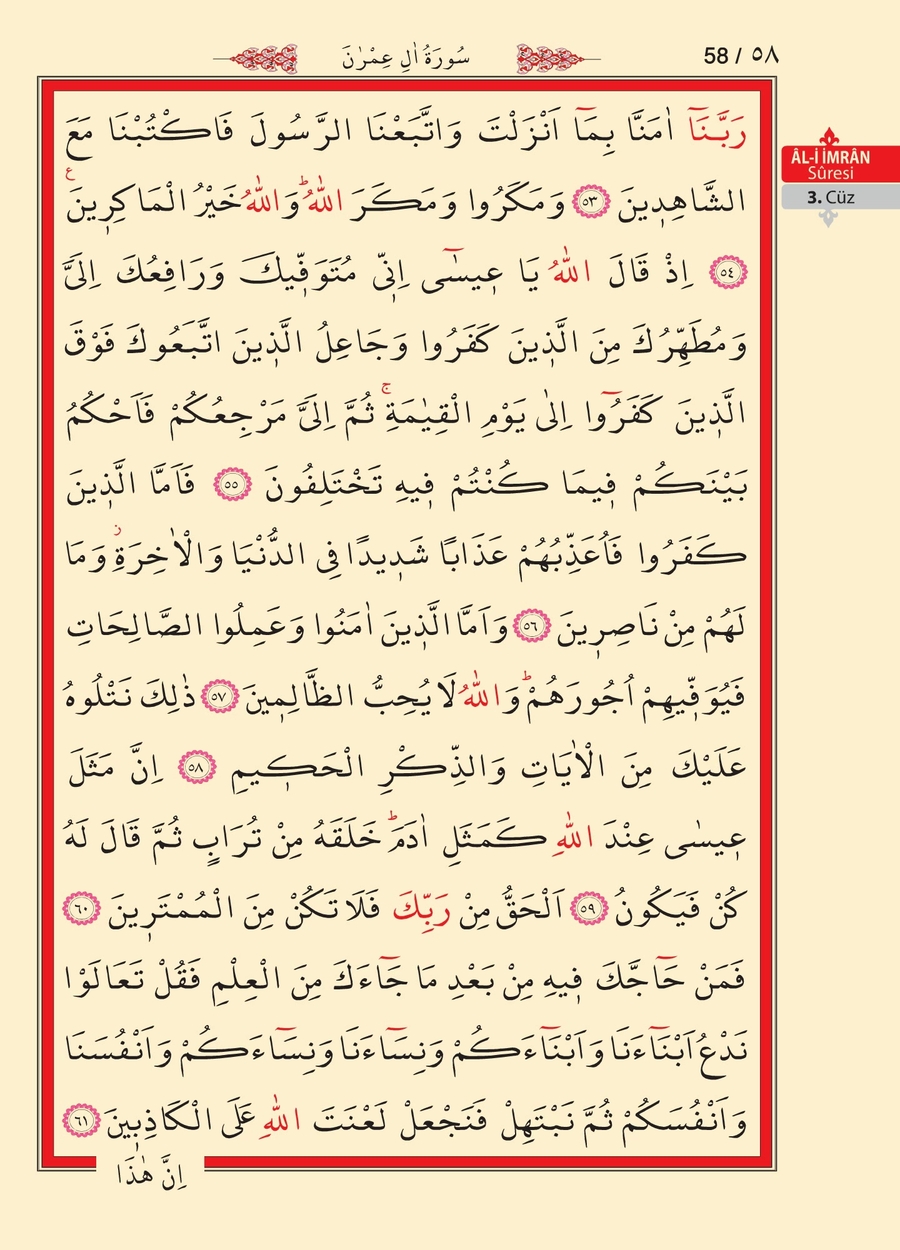 سُورَةُ اٰلِ عِمْرٰنَ
58 / ٥٨
ÂL-İ İMRÂN
Sûresi
3. Cüz
رَبَّنَٓا اٰمَنَّا بِمَٓا اَنْزَلْتَ وَاتَّبَعْنَا الرَّسُولَ فَاكْتُبْنَا مَعَ
الشَّاهِد۪ينَ ﴿٥٣﴾ وَمَكَرُوا وَمَكَرَ اللّٰهُۜ وَاللّٰهُ خَيْرُ الْمَاكِر۪ينَ ع
﴿٥٤﴾ اِذْ قَالَ اللّٰهُ يَا ع۪يسٰٓى اِنّ۪ي مُتَوَفّ۪يكَ وَرَافِعُكَ اِلَيَّ
وَمُطَهِّرُكَ مِنَ الَّذ۪ينَ كَفَرُوا وَجَاعِلُ الَّذ۪ينَ اتَّبَعُوكَ فَوْقَ
الَّذ۪ينَ كَفَرُٓوا اِلٰى يَوْمِ الْقِيٰمَةِۚ ثُمَّ اِلَيَّ مَرْجِعُكُمْ فَاَحْكُمُ
بَيْنَكُمْ ف۪يمَا كُنْتُمْ ف۪يهِ تَخْتَلِفُونَ ﴿٥٥﴾ فَاَمَّا الَّذ۪ينَ
كَفَرُوا فَاُعَذِّبُهُمْ عَذَابًا شَد۪يدًا فِي الدُّنْيَا وَالْاٰخِرَةِۘ وَمَا
لَهُمْ مِنْ نَاصِر۪ينَ ﴿٥٦﴾ وَاَمَّا الَّذ۪ينَ اٰمَنُوا وَعَمِلُوا الصَّالِحَاتِ
فَيُوَفّ۪يهِمْ اُجُورَهُمْۜ وَاللّٰهُ لَا يُحِبُّ الظَّالِم۪ينَ ﴿٥٧﴾ ذٰلِكَ نَتْلُوهُ
عَلَيْكَ مِنَ الْاٰيَاتِ وَالذِّكْرِ الْحَك۪يمِ ﴿٥٨﴾ اِنَّ مَثَلَ
ع۪يسٰى عِنْدَ اللّٰهِ كَمَثَلِ اٰدَمَۜ خَلَقَهُ مِنْ تُرَابٍ ثُمَّ قَالَ لَهُ
كُنْ فَيَكُونُ ﴿٥٩﴾ اَلْحَقُّ مِنْ رَبِّكَ فَلَا تَكُنْ مِنَ الْمُمْتَر۪ينَ ﴿٦٠﴾
فَمَنْ حَٓاجَّكَ ف۪يهِ مِنْ بَعْدِ مَا جَٓاءَكَ مِنَ الْعِلْمِ فَقُلْ تَعَالَوْا
نَدْعُ اَبْنَٓاءَنَا وَاَبْنَٓاءَكُمْ وَنِسَٓاءَنَا وَنِسَٓاءَكُمْ وَاَنْفُسَنَا
وَاَنْفُسَكُمْ ثُمَّ نَبْتَهِلْ فَنَجْعَلْ لَعْنَتَ اللّٰهِ عَلَى الْكَاذِب۪ينَ ﴿٦١﴾
اِنَّ هٰذَا